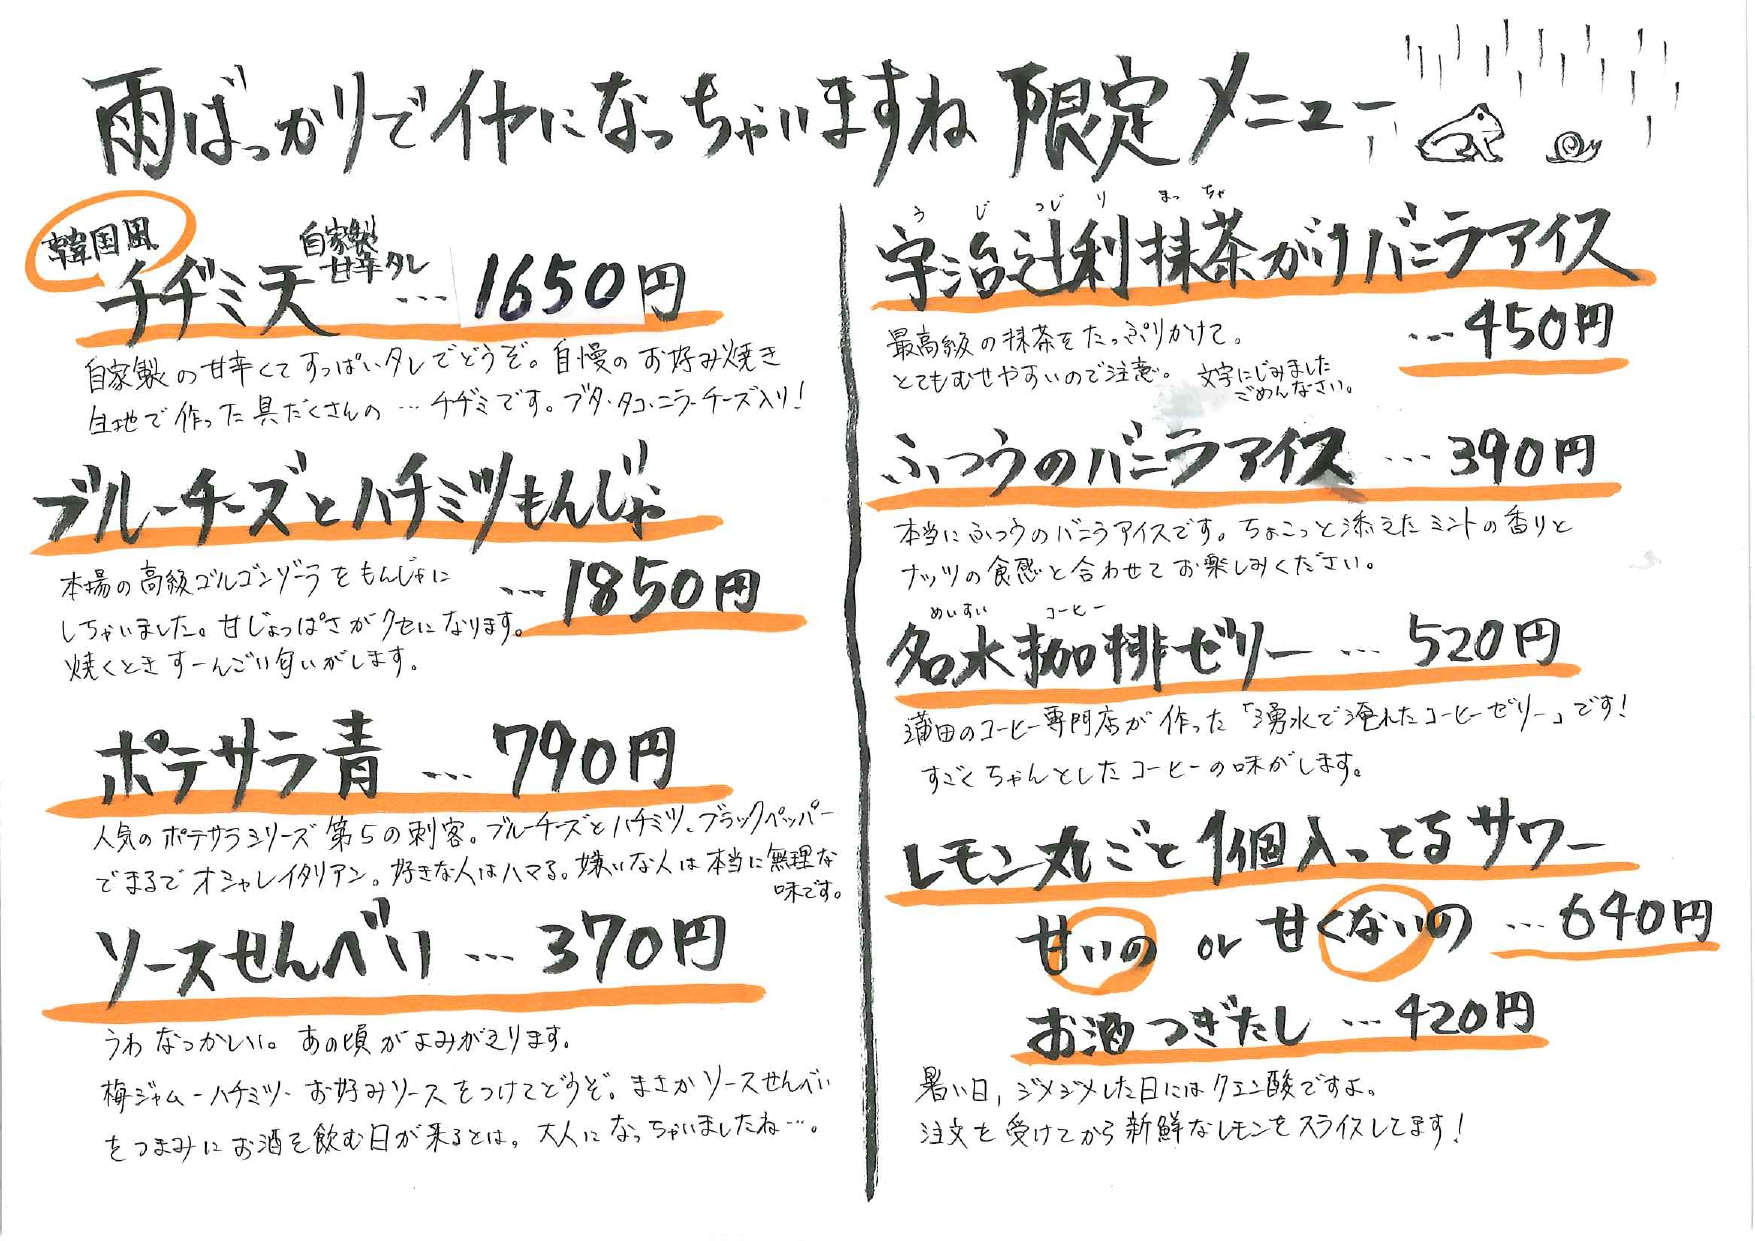 雨ばっかりでイヤになっちゃいますね 限定メニュー
韓国風
チヂミ天 自家製 甘辛タレ … 1650円
自家製の甘辛くてすっぱいタレでどうぞ。自慢のお好み焼き
生地で作った具だくさんの…チヂミです。ブタ・タコ・ニラ・チーズ入り!
ブルーチーズとハチミツもんじゃ
…1850円
本場の高級ゴルゴンゾーラをもんじゃに
しちゃいました。甘じょっぱさがクセになります。
焼くときすーんごい匂いがします。
ポテサラ青 … 790円
人気のポテサラシリーズ第5の刺客。ブルーチーズとハチミツ、ブラックペッパー
でまるでオシャレイタリアン。好きな人はハマる。嫌いな人は本当に無理な
味です。
ソースせんべい … 370円
うわなっかしい。あの頃がよみがえります。
梅ジャム・ハチミツ・お好みソースをつけてどうぞ。まさかソースせんべい
をつまみにお酒を飲む日が来るとは。大人になっちゃいましたね…。
うじつじりまっちゃ
宇治辻利抹茶がけバニラアイス
…450円
最高級の抹茶をたっぷりかけて。
とてもむせやすいので注意。 文字にじみました
ごめんなさい。
ふつうのバニラアイス … 390円
本当にふつうのバニラアイスです。ちょこっと添えたミントの香りと
ナッツの食感と合わせてお楽しみください。
めいすい コーヒー
名水珈琲ゼリー … 520円
蒲田のコーヒー専門店が作った「湧水で淹れたコーヒーゼリー」です!
すごくちゃんとしたコーヒーの味がします。
レモン丸ごと1個入ってるサワー
甘いの or 甘くないの … 640円
お酒つぎたし … 420円
暑い日、ジメジメした日にはクエン酸ですよ。
注文を受けてから新鮮なレモンをスライスしてます!